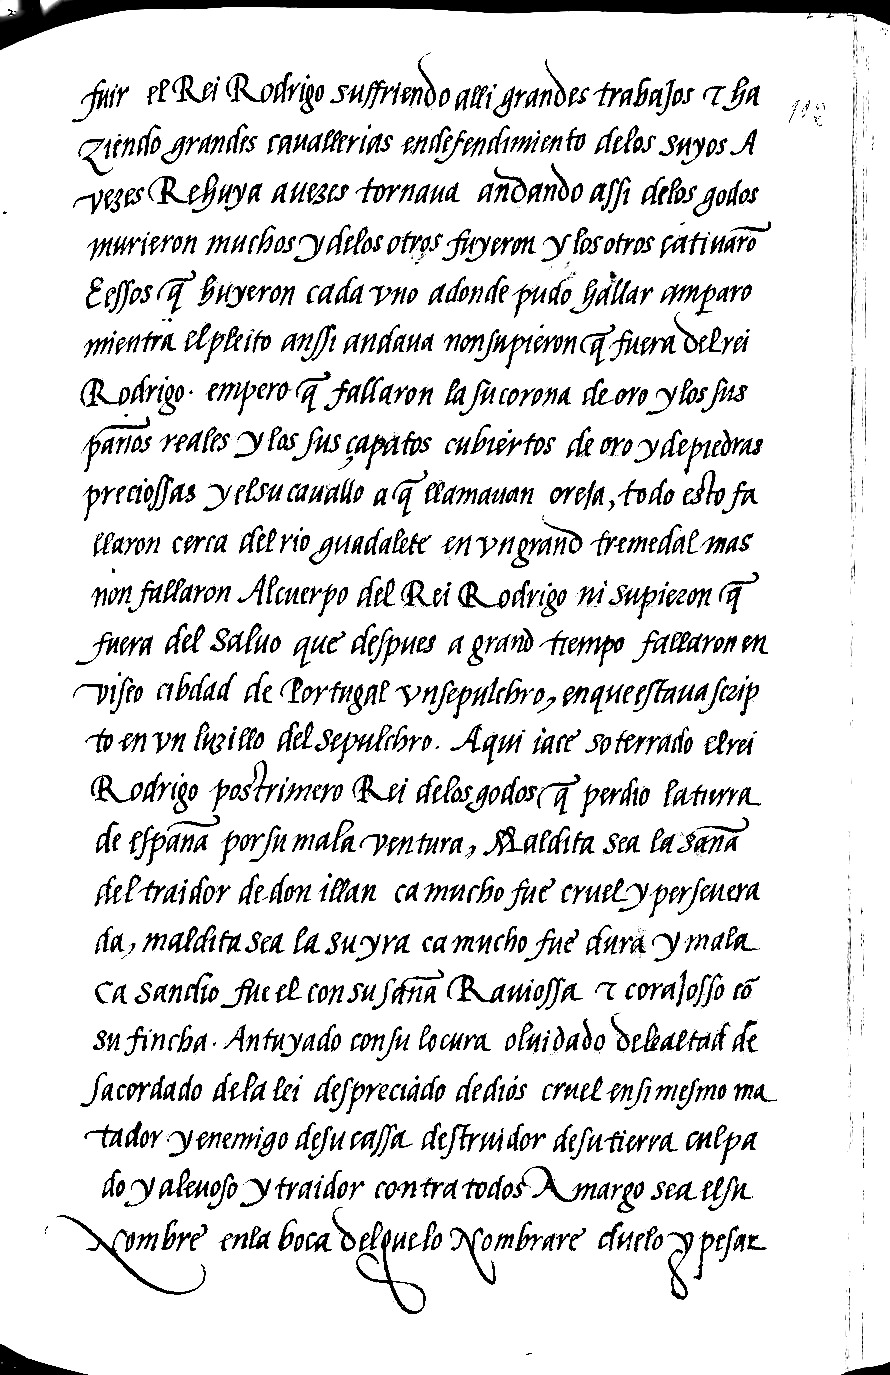 fuir el Rei Rodrigo suffriendo alli grandes trabajos τ ha
ziendo grandes cauallerias endefendimiento delos suyos A
vezes Rehuya auezes tornaua andando assi delos godos
murieron muchos y delos otros fuyeron y los otros catiuarō
E essos q̃ huyeron cada vno adonde pudo hallar amparo
mientra el pleito anssi andaua non supieron q̃ fuera del rei
Rodrigo. empero q̃ fallaron la su corona de oro y los sus
pãnos reales y los sus çapatos cubiertos de oro y de piedras
preciossas y el su cauallo a q̃ llamauan oreja, todo esto fa
llaron cerca del rio guadalete en vn grand tremedal mas
non fallaron Al cuerpo del Rei Rodrigo ni supieron q̃
fuera del Saluo que despues a grand tiempo fallaron en
viseo cibdad de Portugal vn sepulchro, en que estaua scrip
to en vn luzillo del sepulchro. Aqui iace soterrado el rei
Rodrigo postrimero Rei delos godos q̃ perdio la tierra
de espãna por su mala ventura, Maldita sea la sãna
del traidor de don illan ca mucho fue cruel y perseuera
da, maldita sea la su yra ca mucho fue dura y mala
Ca sandio fue el con su sãna Rauiossa τ corajosso cō
su fincha. Antuyado con su locura oluidado de lealtad de
sacordado dela lei despreciado de dios cruel en si mesmo ma
tador y enemigo de su cassa destruidor de su tierra culpa
do y aleuoso y traidor contra todos Amargo sea el su
Nombre en la boca del que lo Nombrare duelo y pesar